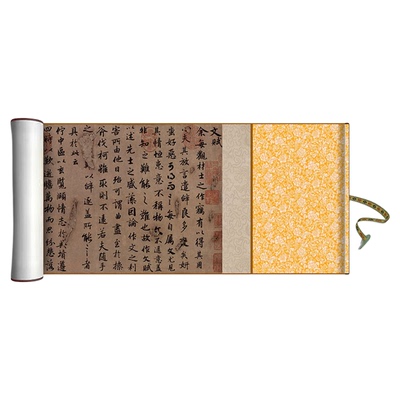 文賦
余每觀材士之作竊有以得其用
心夫其放言遣辭良多變矣妍
蚩好惡可得而言每自屬文尤見
其情恒患意不稱物文不逮意
蓋非知之難能之難也故作文賦
以述先士之盛藻因論作文之利
害所由他日殆可謂曲盡至於操
斧伐柯雖取則不遠若夫隨手
之以辭逮蓋所能言者
佇中區以玄覽頤情志於典墳遵
四時以歎逝瞻萬物而思紛悲落